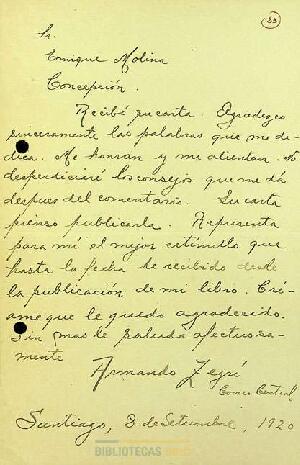 (33)
Sr.
Enrique Molina
Concepción.
Recibí su carta. Agradezco
sinceramente las palabras que me de-
dica. Me honran y me alientan. No
desperdiciaré los consejos que me dá
después del comentario. Su carta
pienso publicarla. Representa
para mí el mejor estímulo que
hasta la fecha he recibido desde
la publicación de mi libro. Cré-
ame que le quedo agradecido.
Sin mas le saluda afectuosa-
mente
Armando Zegrí
Correo Central
Santiago, 3 de Setiembre, 1920
BIBLIOTECAS